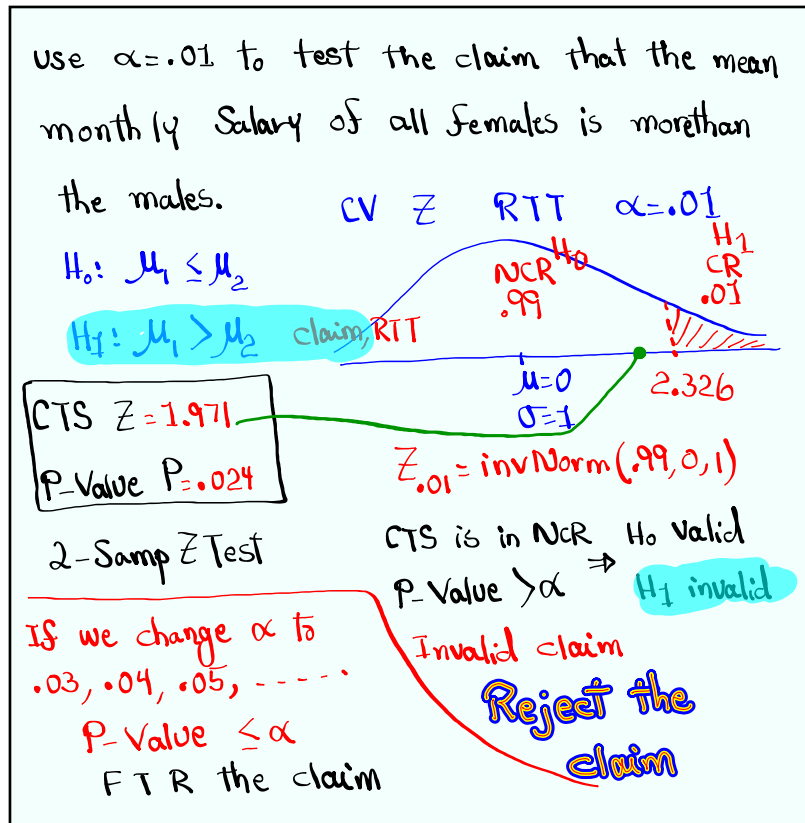 Use α=.01 to test the claim that the mean
monthly Salary of all females is morethan
the males.
CV Z RTT α=.01
H₀: μ₁ ≤ μ₂
H₁: μ₁ > μ₂ claim, RTT
NCR H₀
.99
H₁
CR
.01
μ=0
σ=1
2.326
CTS Z = 1.971
P-Value P=.024
Z.₀₁ = invNorm(.99,0,1)
2-Samp Z Test
CTS is in NCR ⇒ H₀ Valid
P-Value > α H₁ invalid
Invalid claim
Reject the
claim
If we change α to
.03, .04, .05, -----
P-Value ≤ α
FTR the claim